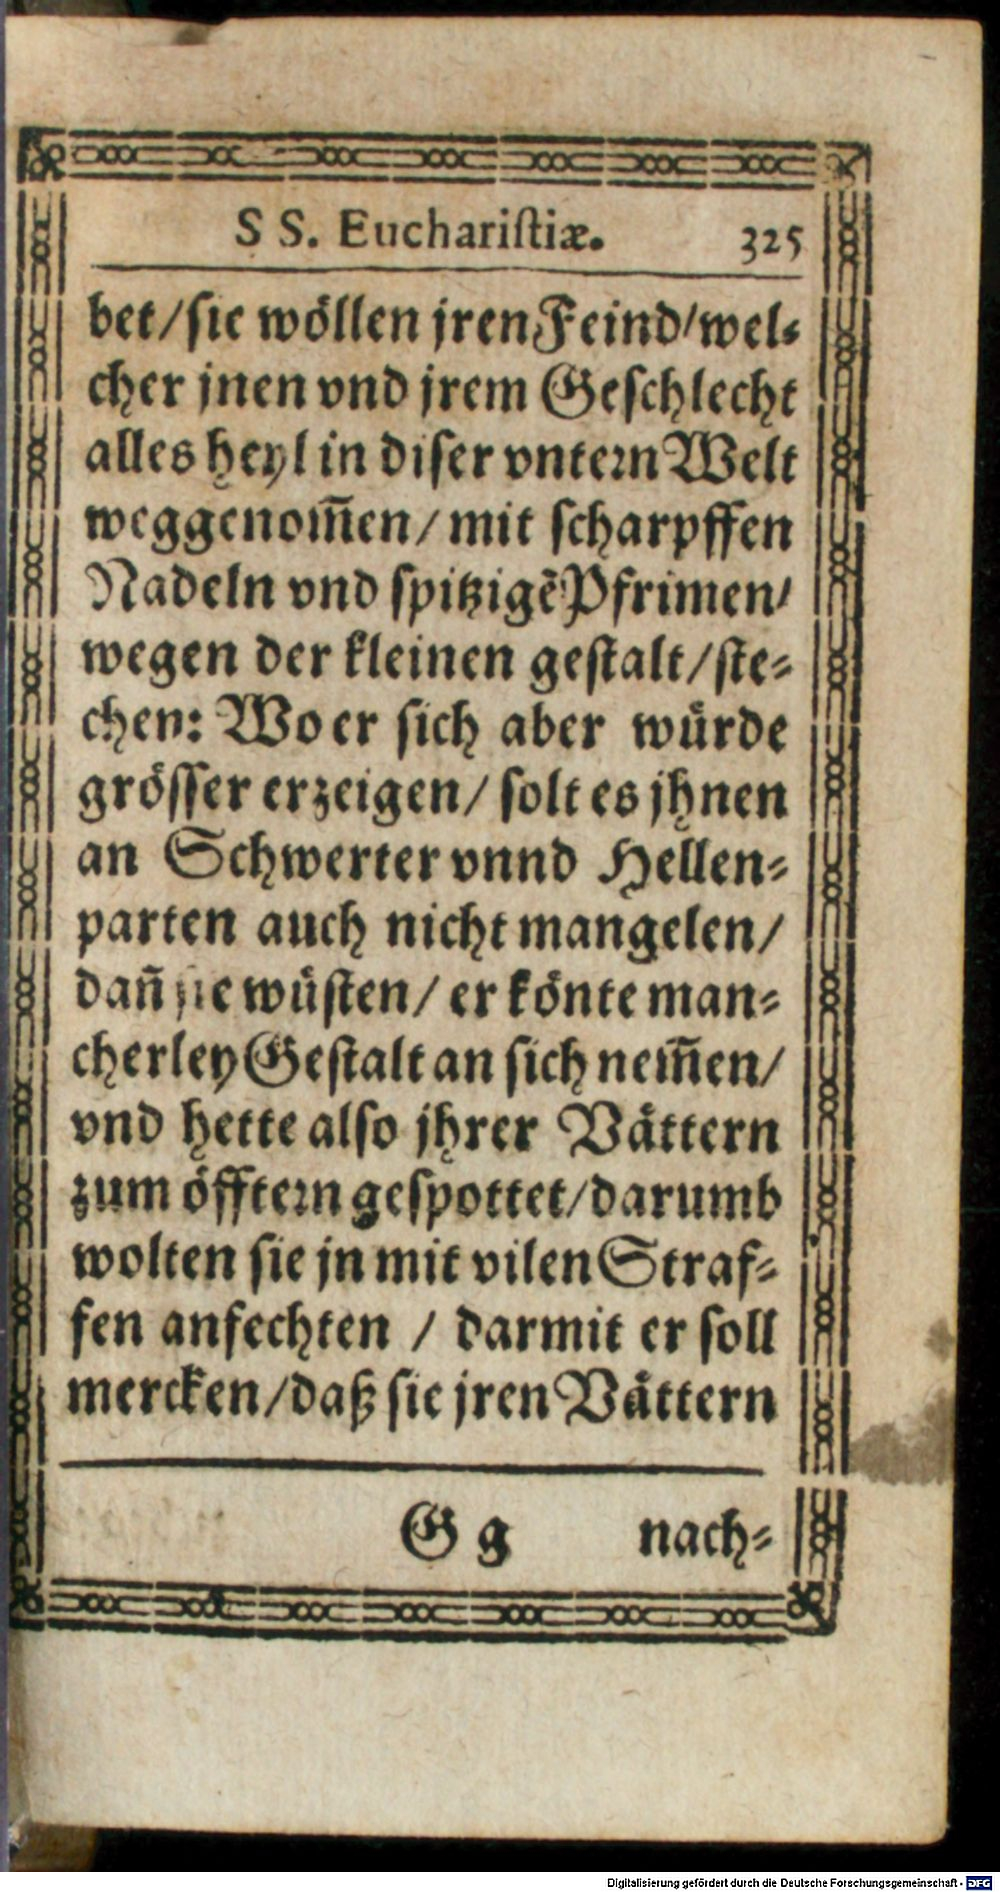 SS. Euchariſtiæ. 325
bet/ſie wöllen jren Feind/wel⸗
cher jnen vnd jrem Geſchlecht
alles heyl in diſer vntern Welt
weggenom̃en/ mit ſcharpffen
Nadeln vnd ſpitzigẽ Pfrimen/
wegen der kleinen geſtalt/ſte⸗
chen: Wo er ſich aber würde
gröſſer erzeigen/ ſolt es jhnen
an Schwerter vnnd Hellen⸗
parten auch nicht mangelen/
dañ ſie wüſten/ er könte man⸗
cherley Geſtalt an ſich nem̃en/
vnd hette alſo jhrer Vättern
zum öfftern geſpottet/darumb
wolten ſie jn mit vilen Straf⸗
fen anfechten / darmit er ſoll
mercken/daß ſie jren Vättern
G g nach⸗
Digitalisierung gefördert durch die Deutsche Forschungsgemeinschaft - DFG